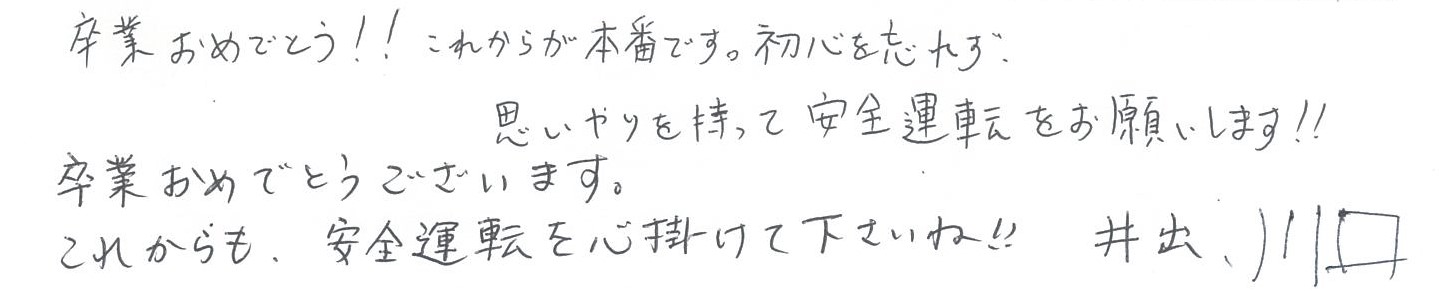 卒業おめでとう!! これからが本番です。初心を忘れず、
思いやりを持って安全運転をお願いします!!
卒業おめでとうございます。
これからも、安全運転を心掛けて下さいね!! 井出、川口